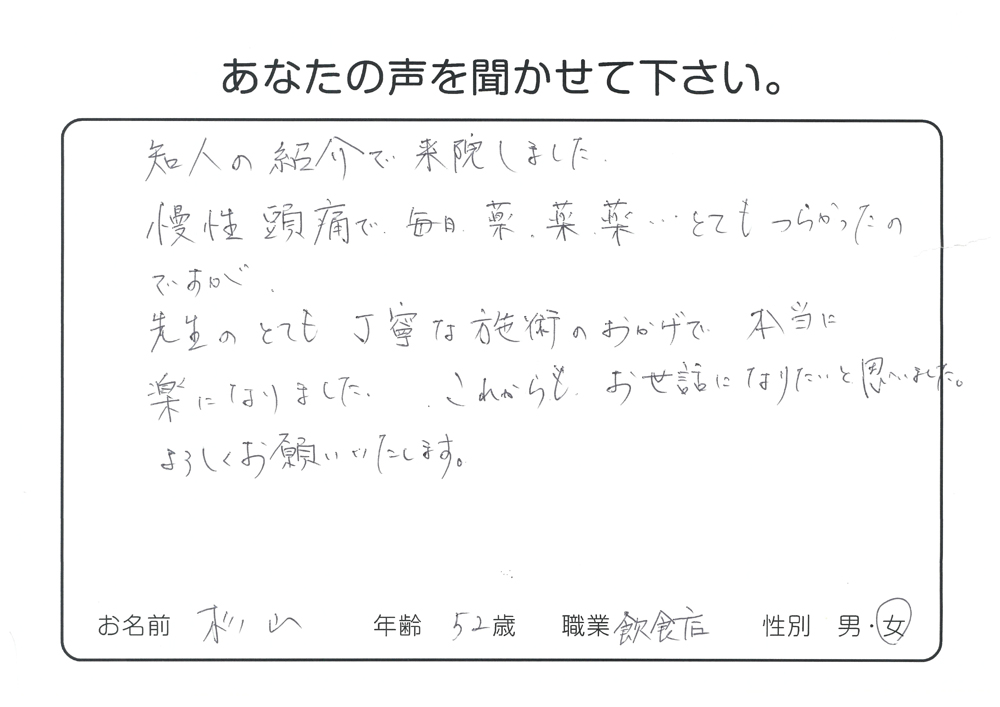 あなたの声を聞かせて下さい。
知人の紹介で来院しました.
慢性頭痛で.毎日.薬.薬.薬…とてもつらかったの
ですが.
先生のとても丁寧な施術のおかげで 本当に
楽になりました. これからも.お世話になりたいと思いました。
よろしくお願いいたします。
お名前 杉山 年齢 52歳 職業 飲食店 性別 男・女